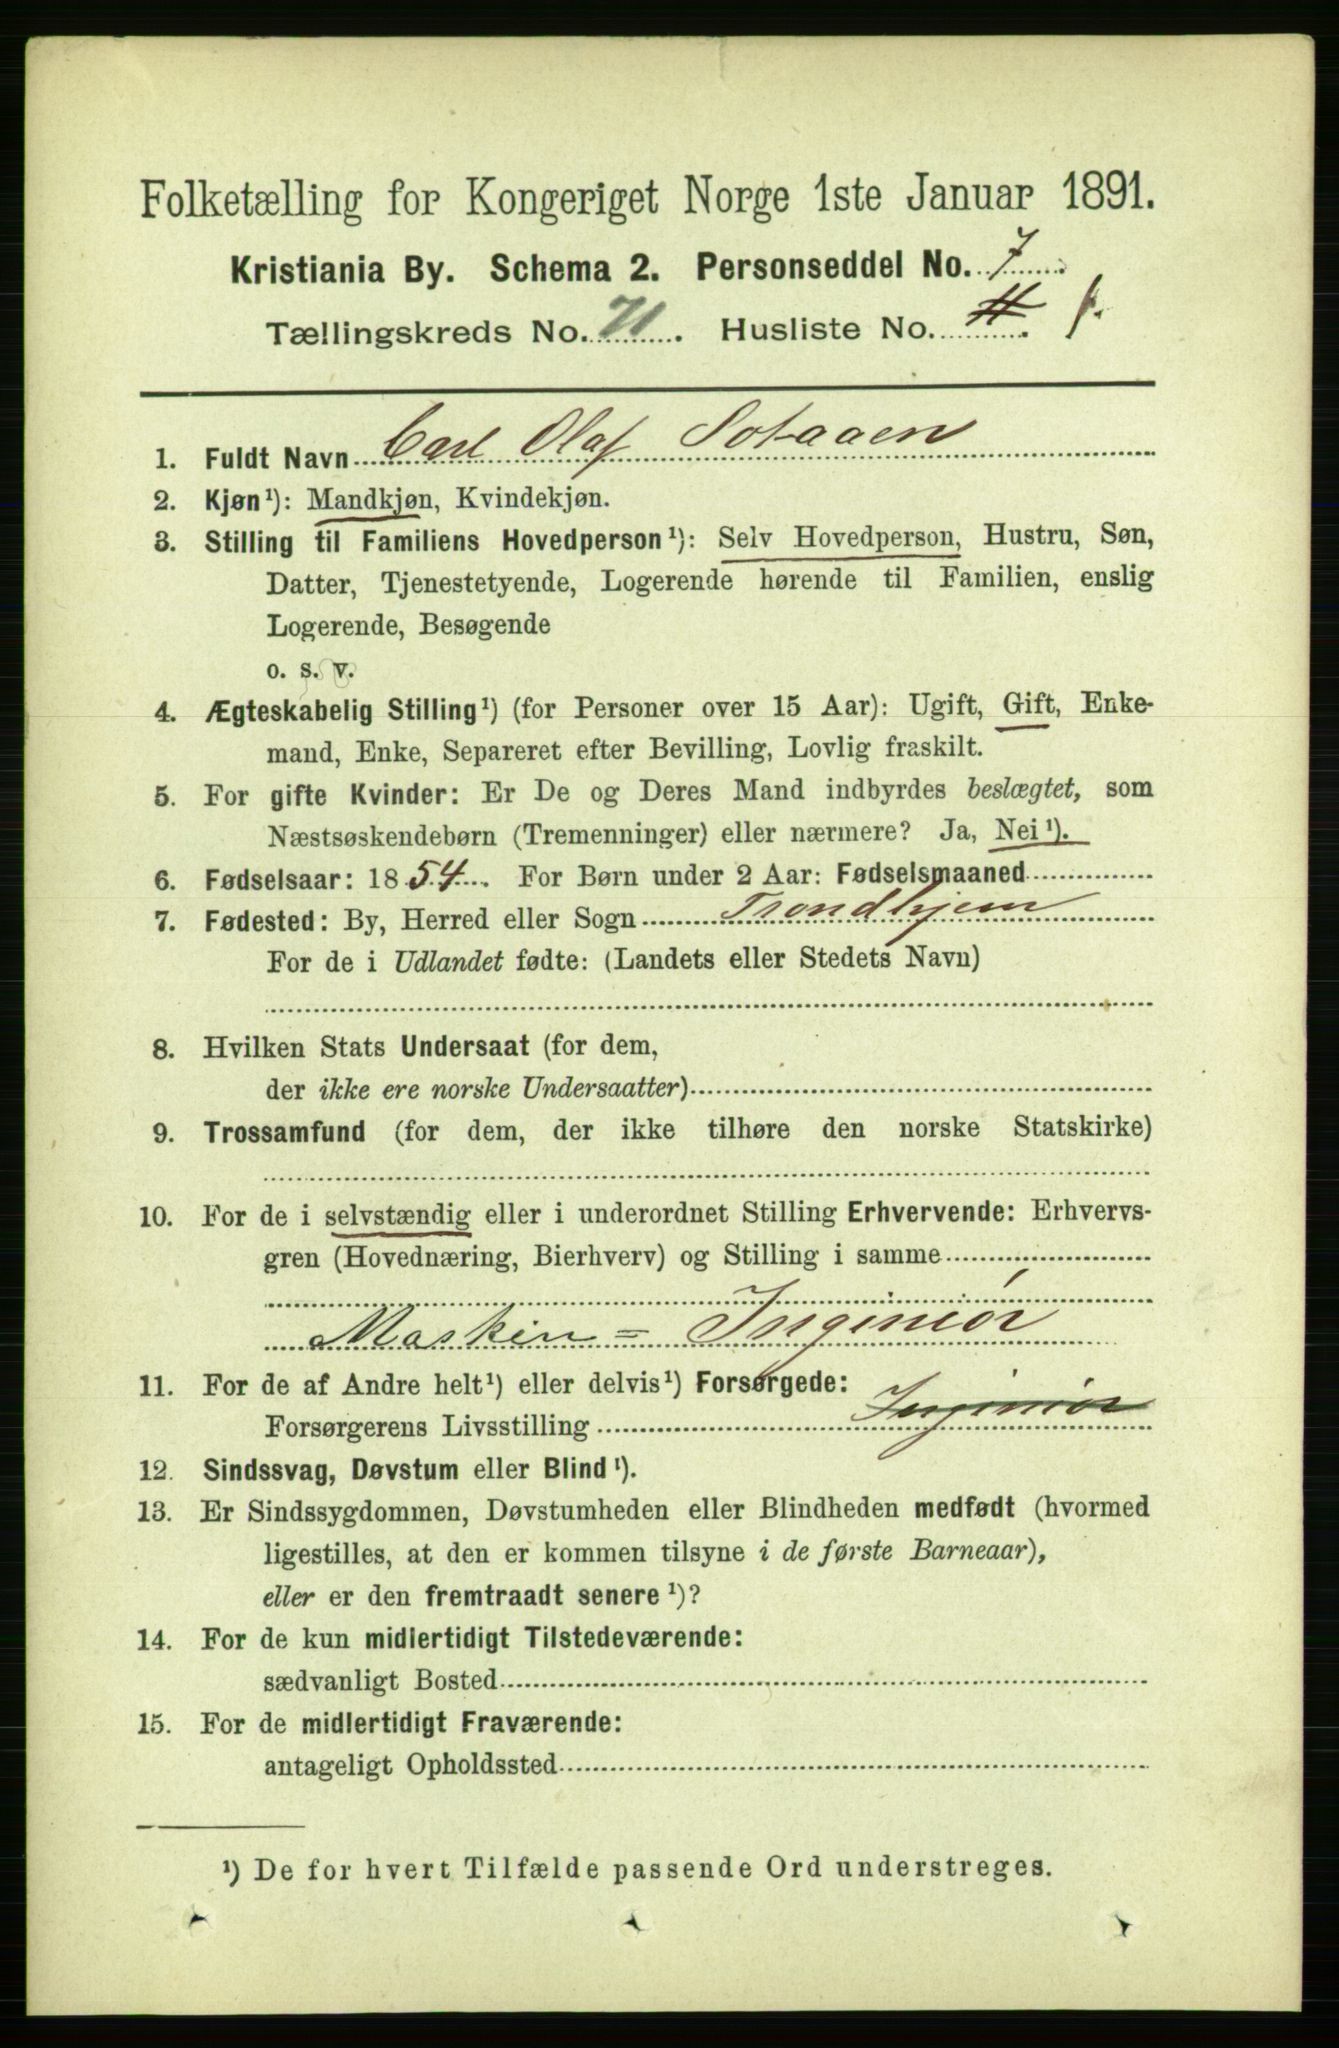 Folketælling for Kongeriget Norge 1ste Januar 1891.
Kristiania By. Schema 2. Personseddel No. 7
Tællingskreds No. 71. Husliste No. 
1. Fuldt Navn Carl Olaf Sotaaen
2. Kjøn¹): Mandkjøn, Kvindekjøn.
3. Stilling til Familiens Hovedperson¹): Selv Hovedperson, Hustru, Søn,
Datter, Tjenestetyende, Logerende hørende til Familien, enslig
Logerende, Besøgende
o. s. v.
4. Ægteskabelig Stilling¹) (for Personer over 15 Aar): Ugift, Gift, Enke-
mand, Enke, Separeret efter Bevilling, Lovlig fraskilt.
5. For gifte Kvinder: Er De og Deres Mand indbyrdes beslægtet, som
Næstsøskendebørn (Tremenninger) eller nærmere? Ja, Nei¹).
6. Fødselsaar: 1854. For Børn under 2 Aar: Fødselsmaaned
7. Fødested: By, Herred eller Sogn Trondhjem
For de i Udlandet fødte: (Landets eller Stedets Navn)
8. Hvilken Stats Undersaat (for dem,
der ikke ere norske Undersaatter)
9. Trossamfund (for dem, der ikke tilhøre den norske Statskirke)
10. For de i selvstændig eller i underordnet Stilling Erhvervende: Erhvervs-
gren (Hovednæring, Bierhverv) og Stilling i samme
Maskin= Ingeniør
11. For de af Andre helt¹) eller delvis¹) Forsørgede:
Forsørgerens Livsstilling Ingeniør
12. Sindssvag, Døvstum eller Blind¹).
13. Er Sindssygdommen, Døvstumheden eller Blindheden medfødt (hvormed
ligestilles, at den er kommen tilsyne i de første Barneaar),
eller er den fremtraadt senere¹)?
14. For de kun midlertidigt Tilstedeværende:
sædvanligt Bosted
15. For de midlertidigt Fraværende:
antageligt Opholdssted
¹) De for hvert Tilfælde passende Ord understreges.